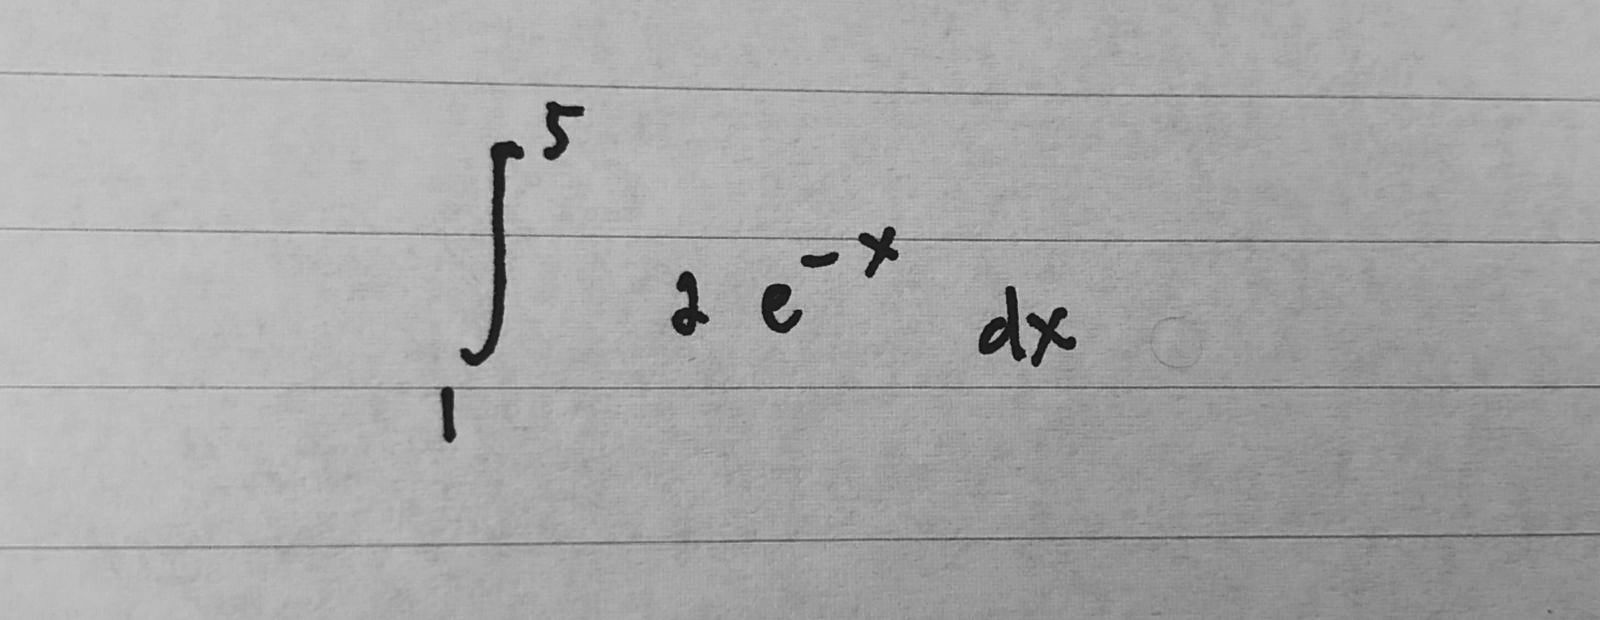 ∫₁⁵ 2 e⁻ˣ dx